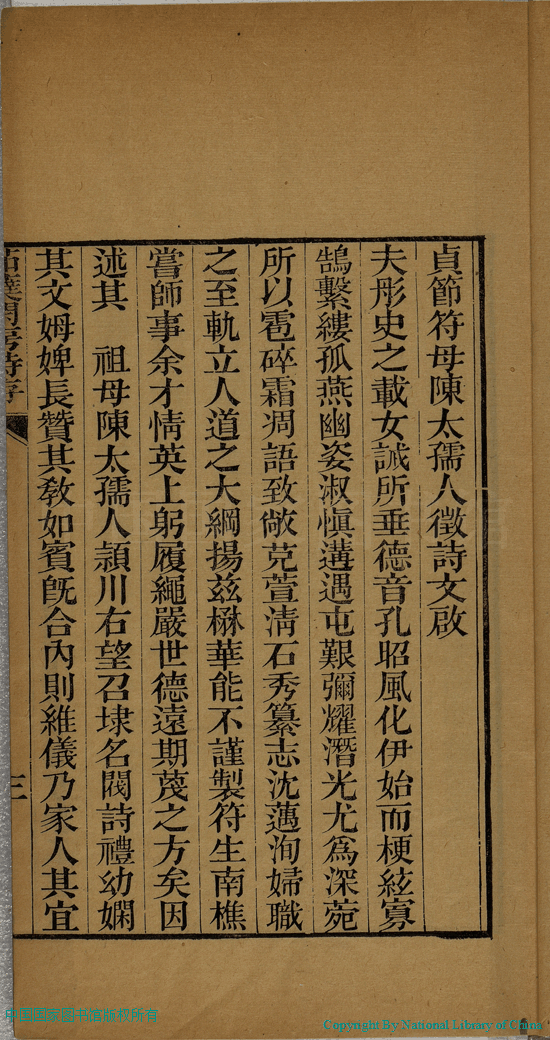 貞節符母陳太孺人徵詩文啟
夫彤史之載女誡所垂德音孔昭風化伊始而梗絃寡
鵠繫縷孤燕幽姿淑慎遘遇屯艱彌耀潛光尤為深菀
所以雹碎霜凋語致敞芫萱清石秀纂志沈薖洵婦職
之至軌立人道之大綱揚茲楙華能不謹製符生南樵
嘗師事余才情英上躬履繩嚴世德遠期蔑之方矣因
述其　祖母陳太孺人潁川右望召埭名閥詩禮幼嫻
其文姆婢長贊其敎如賓旣合內則維儀乃家人其宜
三
中国国家图书馆版权所有
Copyright By National Library of China